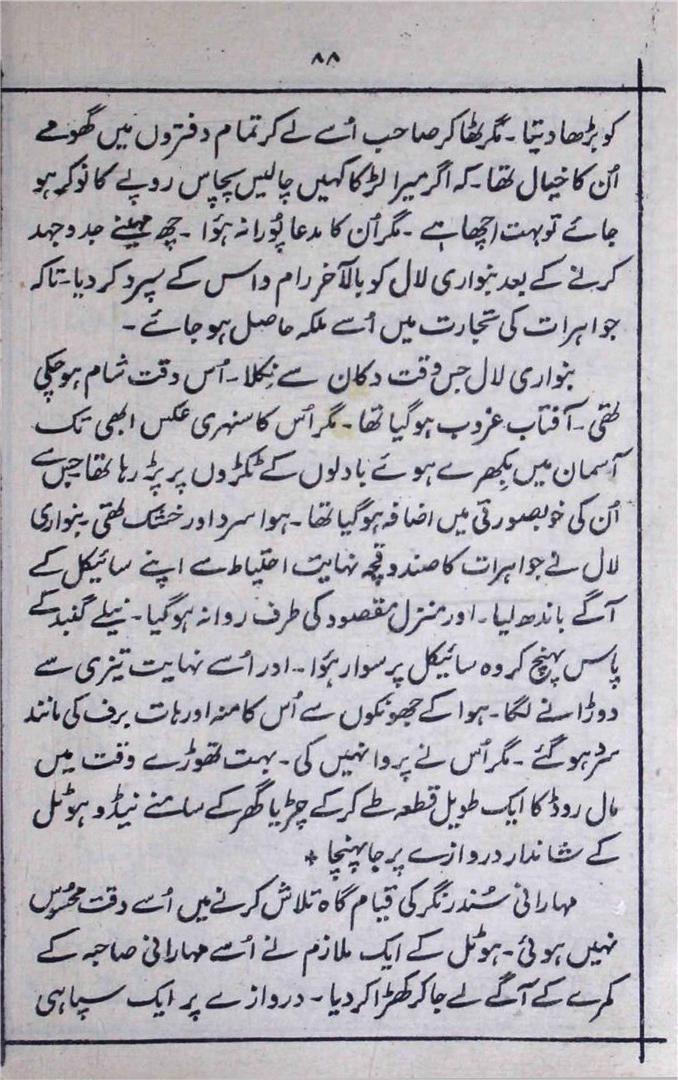 ۸۸
کو بڑھا دیتا ۔ مگر ٹھاکر صاحب اُسے لے کر تمام دفتروں میں گھومے
اُن کا خیال تھا ۔ کہ اگر میرا لڑکا کہیں چالیس پچاس روپے کا نوکر ہو
جائے تو بہت اچھا ہے ۔ مگر اُن کا مدعا پُورا نہ ہؤا ۔ چھ مہینے جدوجہد
کرنے کے بعد بنواری لال کو بالآخر رام داس کے سپرد کر دیا ۔ تاکہ
جواہرات کی تجارت میں اُسے ملکہ حاصل ہو جائے ۔
بنواری لال جس وقت دکان سے نِکلا ۔ اُس وقت شام ہو چکی
تھی ۔ آفتاب غروب ہو گیا تھا ۔ مگر اُس کا سنہری عکس ابھی تک
آسمان میں بکھرے ہوئے بادلوں کے ٹکڑوں پر پڑ رہا تھا جس سے
اُن کی خوبصورتی میں اضافہ ہو گیا تھا ۔ ہوا سرد اور خشک تھی ۔ بنواری
لال نے جواہرات کا صندوقچہ نہایت احتیاط سے اپنے سائیکل کے
آگے باندھ لیا ۔ اور منزل مقصود کی طرف روانہ ہو گیا ۔ نیلے گنبد کے
پاس پہنچ کر وہ سائیکل پر سوار ہؤا ۔ اور اُسے نہایت تیزی سے
دوڑانے لگا ۔ ہوا کے جھونکوں سے اُس کا منہ اور ہات برف کی مانند
سرد ہو گئے ۔ مگر اُس نے پروا نہیں کی ۔ بہت تھوڑے وقت میں
مال روڈ کا ایک طویل قطعہ طے کر کے چڑیا گھر کے سامنے نیڈو ہوٹل
کے شاندار دروازے پر جا پہنچا ٭
مہارانی سُندر نگر کی قیام گاہ تلاش کرنے میں اُسے دقت محسُوس
نہیں ہوئی ۔ ہوٹل کے ایک ملازم نے اُسے مہارانی صاحبہ کے
کمرے کے آگے لے جا کر کھڑا کر دیا ۔ دروازے پر ایک سپاہی